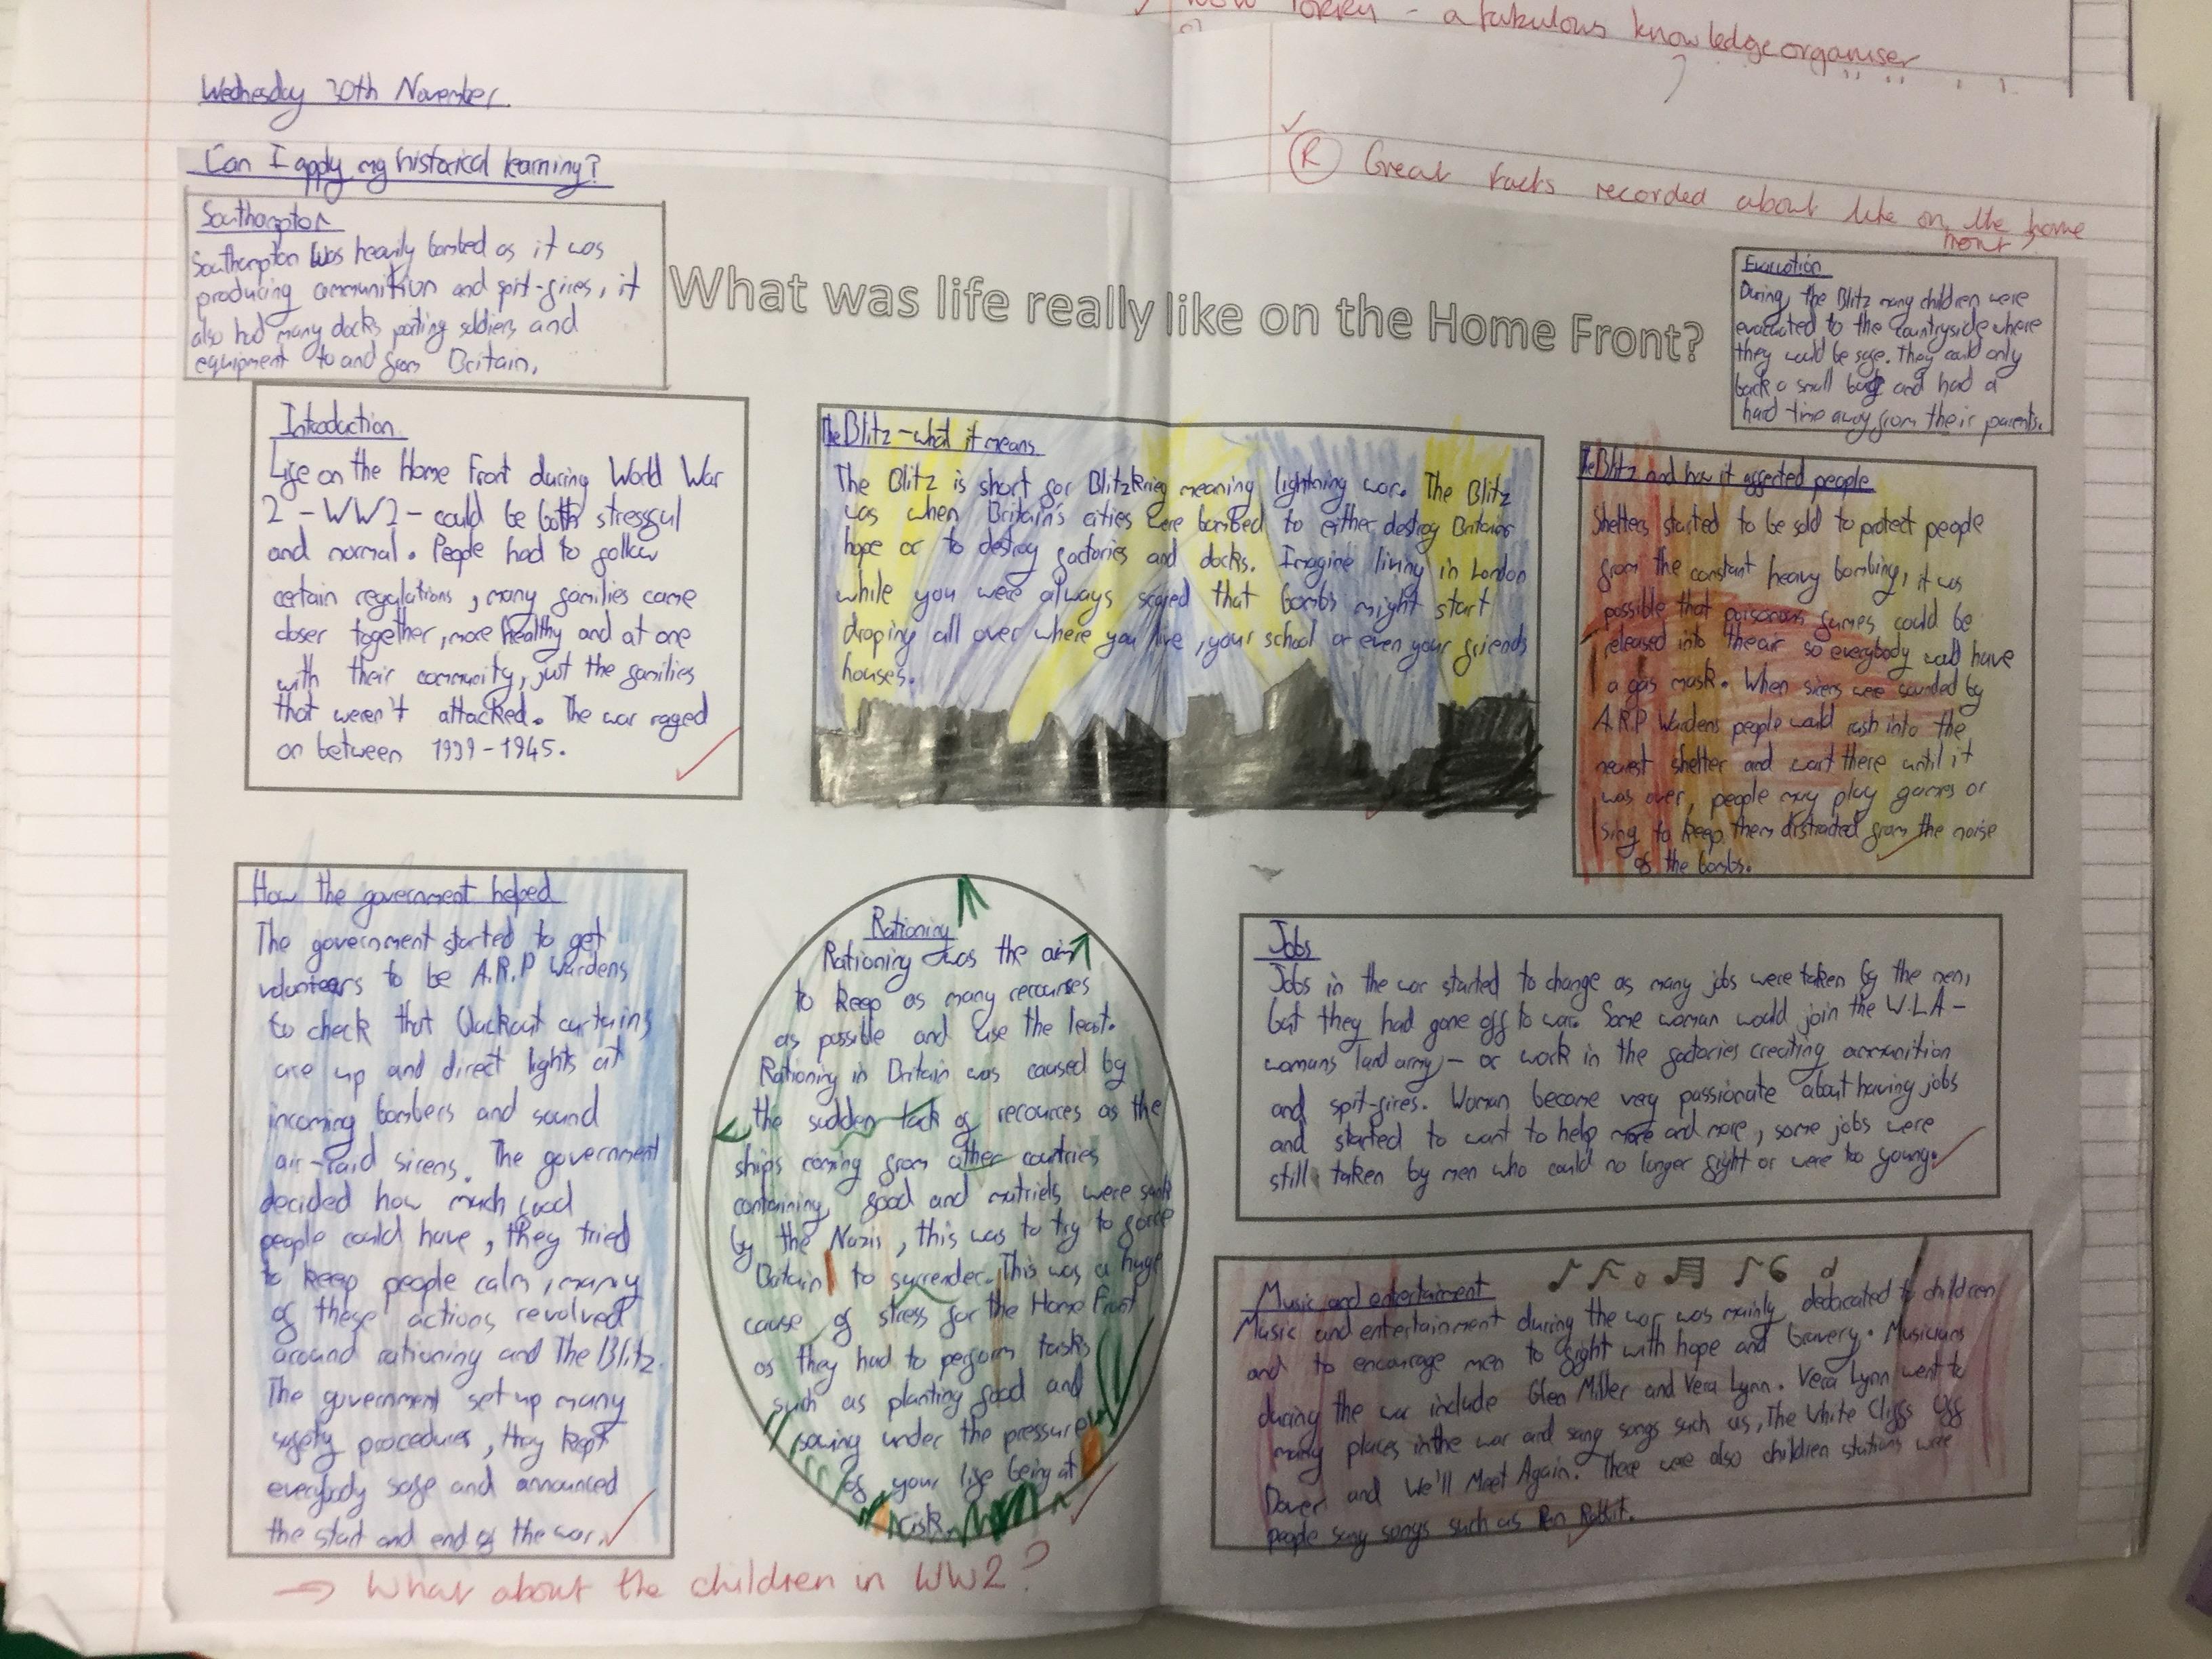 a fabulous knowledge organiser
Wednesday 30th November
Can I apply my historical learning?
R Great facts recorded about life on the home
front
Southampton
Southampton was heavily bombed as it was
producing ammunition and spit-fires, it
also had many docks porting soldiers and
equipment to and from Britain.
What was life really like on the Home Front?
Evacuation
During the Blitz many children were
evacuated to the countryside where
they would be safe. They could only
back a small bag and had a
hard time away from their parents.
Introduction
Life on the Home Front during World War
2 - WW2 - could be both stressful
and normal. People had to follow
certain regulations, many families came
closer together, more healthy and at one
with their community, just the families
that weren't attacked. The war raged
on between 1939-1945.
The Blitz - what it means
The Blitz is short for Blitzkrieg meaning lightning war. The Blitz
was when Britain's cities were bombed to either destroy Britains
hope or to destroy factories and docks. Imagine living in London
while you were always scared that bombs might start
droping all over where you live, your school or even your friends
houses.
The Blitz and how it affected people
Shelters started to be sold to protect people
from the constant heavy bombing, it was
possible that poisonous fumes could be
released into the air so everybody would have
a gas mask. When sirens were sounded by
A.R.P Wardens people would rush into the
nearest shelter and wait there until it
was over, people may play games or
sing to keep them distracted from the noise
of the bombs.
How the government helped
The government started to get
volunteers to be A.R.P Wardens
to check that blackout curtains
are up and direct lights at
incoming bombers and sound
air-raid sirens. The government
decided how much food
people could have, they tried
to keep people calm, many
of these actions revolved
around rationing and The Blitz.
The government set up many
safety procedures, they kept
everybody safe and announced
the start and end of the war.
Rationing
Rationing was the aim
to keep as many recourses
as possible and use the least.
Rationing in Britain was caused by
the sudden lack of recources as the
ships coming from other countries
containing food and matriels were sank
by the Nazis, this was to try to force
Britain to surrender. This was a huge
cause of stress for the Home Front
as they had to perform tasks
such as planting food and
sowing under the pressure
of your life being at
risk.
Jobs
Jobs in the war started to change as many jobs were taken by the men,
but they had gone off to war. Some woman would join the W.L.A -
womans land army - or work in the factories creating ammunition
and spit-fires. Woman become very passionate about having jobs
and started to want to help more and more, some jobs were
still taken by men who could no longer fight or were too young.
Music and entertainment
Music and entertainment during the war was mainly dedacated to children
and to encourage men to fight with hope and bravery. Musicians
during the war include Glen Miller and Vera Lynn. Vera Lynn went to
many places in the war and sang songs such as, The White Cliffs Off
Dover and We'll Meet Again. There were also children stations were
people sang songs such as Run Rabbit.
→ What about the children in WW2?